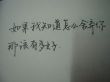 如果我知道怎么舍弃你
那该有多好